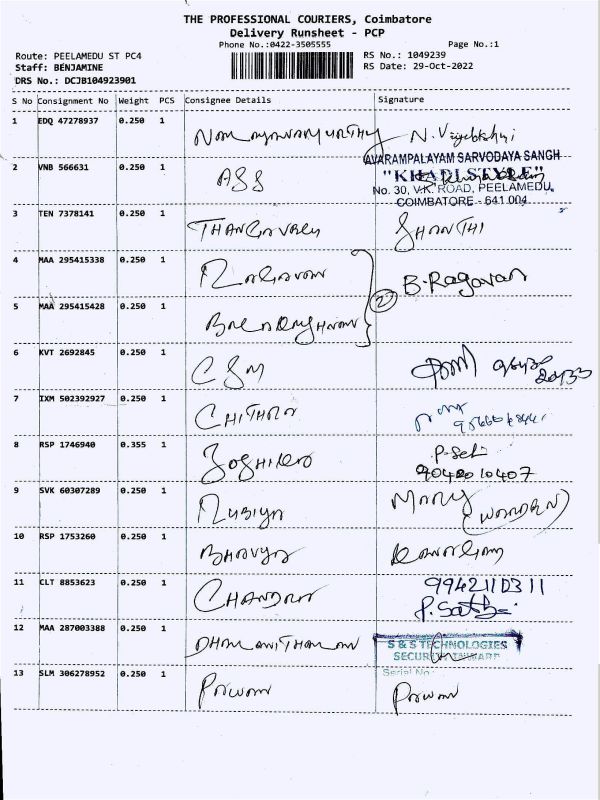 THE PROFESSIONAL COURIERS, Coimbatore
Delivery Runsheet - PCP
Phone No.:0422-3505555 Page No.:1
Route: PEELAMEDU ST PC4 RS No.: 1049239
Staff: BENJAMINE RS Date: 29-Oct-2022
DRS No.: DCJB104923901
S No Consignment No Weight PCS Consignee Details Signature
1 EDQ 47278937 0.250 1
AVARAMPALAYAM SARVODAYA SANGH
2 VNB 566631 0.250 1 ASS "KHADI STYLE"
No. 30, V.K. ROAD, PEELAMEDU,
COIMBATORE - 641 004
3 TEN 7378141 0.250 1 THANGAVELU SHANTHI
4 MAA 295415338 0.250 1 RAGAVAN B.Ragavan
2
5 MAA 295415428 0.250 1
6 KVT 2692845 0.250 1 CSM
7 IXM 502392927 0.250 1 CHITHRA
8 RSP 1746940 0.355 1 P.Sel
9042010407
9 SVK 60307289 0.250 1 RUBIYA MARY (WARDEN)
10 RSP 1753260 0.250 1 BHAVYA
11 CLT 8853623 0.250 1 CHANDRA 9942110311
12 MAA 287003388 0.250 1 S & S TECHNOLOGIES
SECURITY INWARD
Serial No
13 SLM 306278952 0.250 1 PAWAN PAWAN